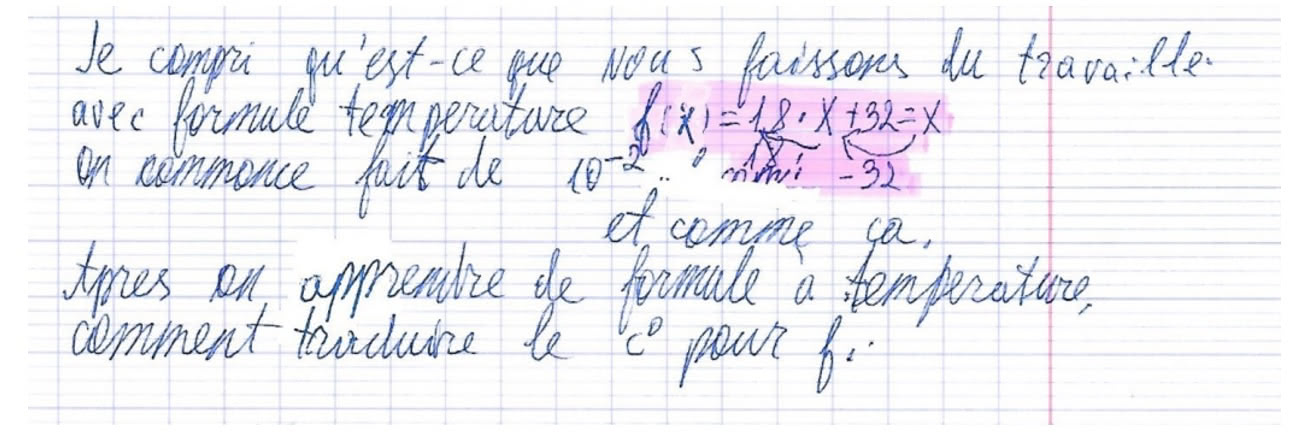 Je compri qu'est-ce que nous faissons du travaille.
avec formule temperature f(x) = 18 · X + 32 = X
on commonce fait de 10⁻² 18 -32
et comme ça.
Apres on apprendre de formule à température,
comment traduire le c° pour f.